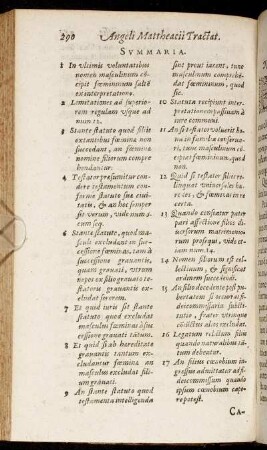 290 Angeli Mattheacii Tractat.
SVMMARIA.
1 In vltimis voluntatibus
nomen masculinum cõ-
cipit fœmininum saltẽ
ex interpretatione.
2 Limitationes ad superio-
rem regulam vsque ad
num. 12.
3 Stante statuto quod filiis
extantibus fœminæ non
succedant, an fœminæ
nomine filiorum compre
hendantur.
4 Testator præsumitur con
dere testamentum con-
forme statutis suæ ciuita-
tis, & an hoc semper
sit verum, vide num.
seq.
6 Stante statuto, quod ma-
sculi excludant in suc-
cessione fœminas, tam in
successione grauantis,
quam grauati, vtrum
nepos ex filio grauato te-
statoris grauantis ex-
cludat sororem.
7 Et quid iuris si stante
statuto quod excludat
masculus fœminas à suc-
cessione grauati tãtum.
8 Et quid si ab hæreditate
grauantis tantum ex-
cludantur fœminæ an
masculus excludat fili-
am grauati.
9 An stante statuto quod
testamenta intelligenda
sint prout iacent, tunc
masculinum comprehen-
dat fœmininum, quod
sic.
10 Statuta recipiunt inter-
pretationem passiuam à
iure communi.
11 An si testator voluerit bo-
na in familia conserua-
ri, tunc masculinum con-
cipiat fœmininum, quod
non.
12 Quid si testator sibi re-
linquat vniuersales hæ-
redes, & fœminas in re
certa.
13 Quando censeatur pater
pari affectione filios di-
uersorum matrimonio-
rum prosequi, vide eti-
am num. 14.
14 Nomen filiorum est col-
lectiuum, & significat
ordinem succediuum.
15 An filio decedente post pu-
bertatem si secundus ad
fideicommissum substi-
tutus, frater vterinus
concipiatur, an consan-
guineus.
16 Legatum relictum filiis
quando naturalibus tã-
tum debeatur.
17 An filius cœnobium in-
gressus admittatur ad fi-
deicommissum quando
ipsum cœnobium cape-
re potest.
CA-